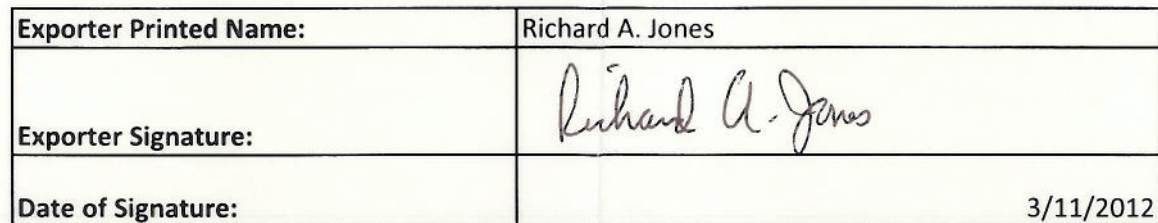 Exporter Printed Name: Richard A. Jones
Exporter Signature: Richard A. Jones
Date of Signature: 3/11/2012